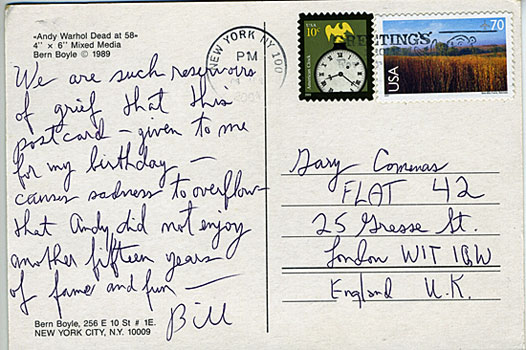 «Andy Warhol Dead at 58»
4" × 6" Mixed Media
Bern Boyle © 1989
We are such reservoirs
of grief that this
postcard – given to me
for my birthday –
causes sadness to overflow
that Andy did not enjoy
another fifteen years
of fame and fun –
Bill
Bern Boyle, 256 E 10 St # 1E.
NEW YORK CITY, N.Y. 10009
NEW YORK NY 100
PM
USA
10¢
American Clock
GREETINGS
70
USA
Gary Comenas
FLAT 42
25 Gresse St.
London W1T 1QW
England U.K.